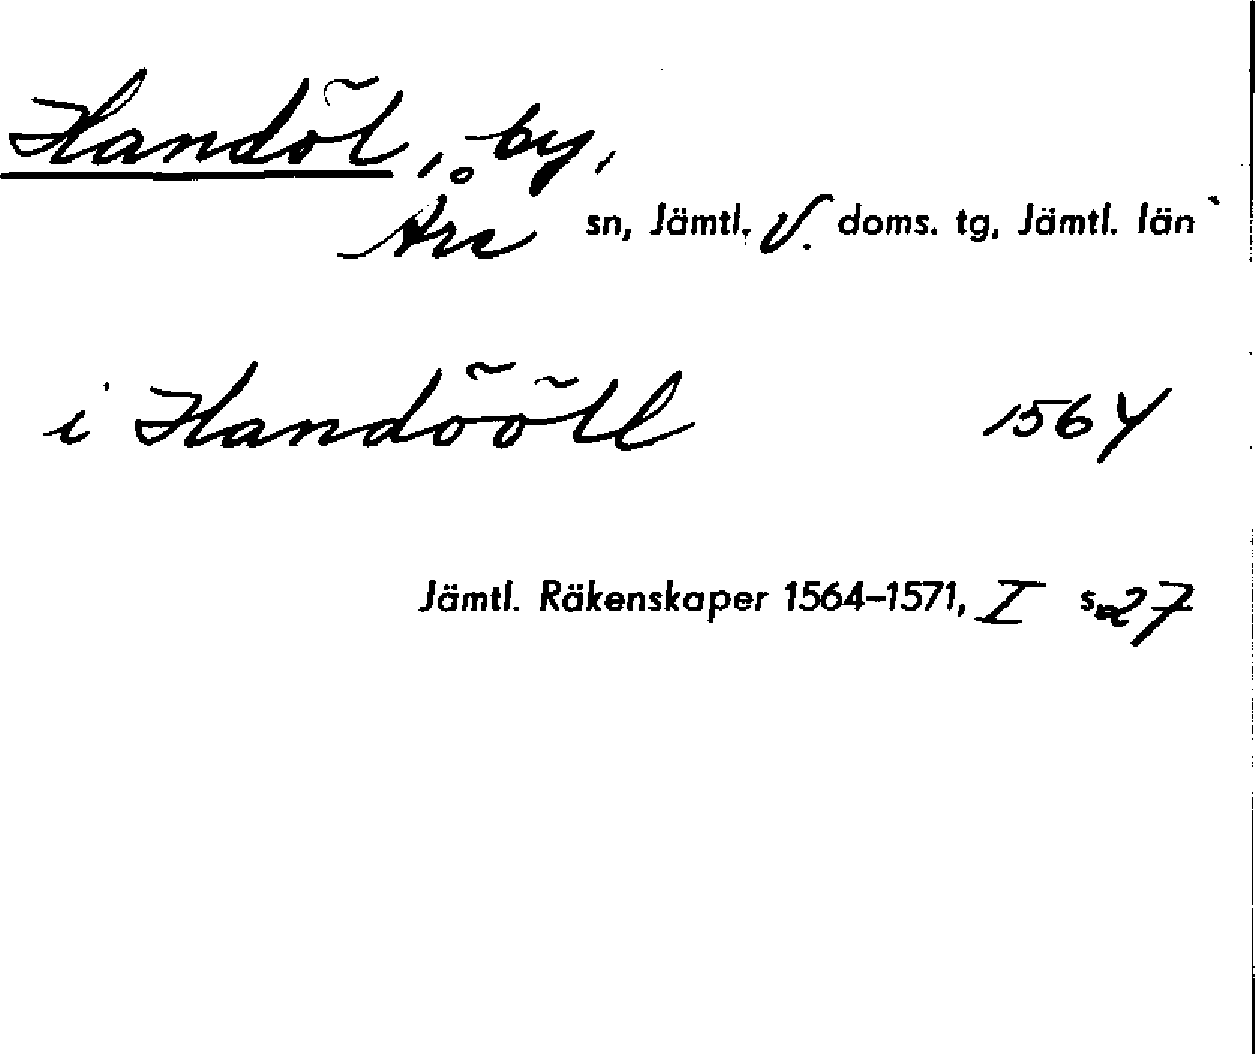 Handöl, by,
Åre sn, Jämtl. V. doms. tg, Jämtl. län
i Handööll 1564
Jämtl. Räkenskaper 1564–1571, I s. 27